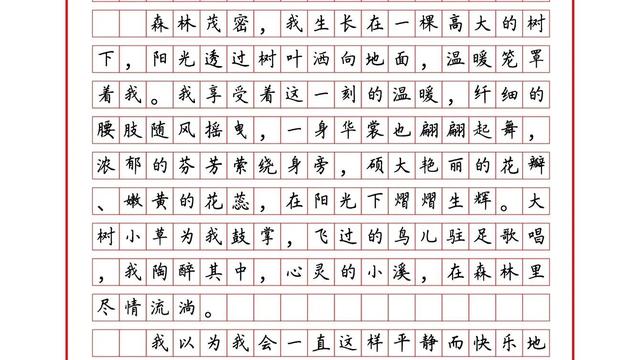 森林茂密，我生长在一棵高大的树
下，阳光透过树叶洒向地面，温暖笼罩
着我。我享受着这一刻的温暖，纤细的
腰肢随风摇曳，一身华裳也翩翩起舞，
浓郁的芬芳萦绕身旁，硕大艳丽的花瓣
、嫩黄的花蕊，在阳光下熠熠生辉。大
树小草为我鼓掌，飞过的鸟儿驻足歌唱
，我陶醉其中，心灵的小溪，在森林里
尽情流淌。
我以为我会一直这样平静而快乐地